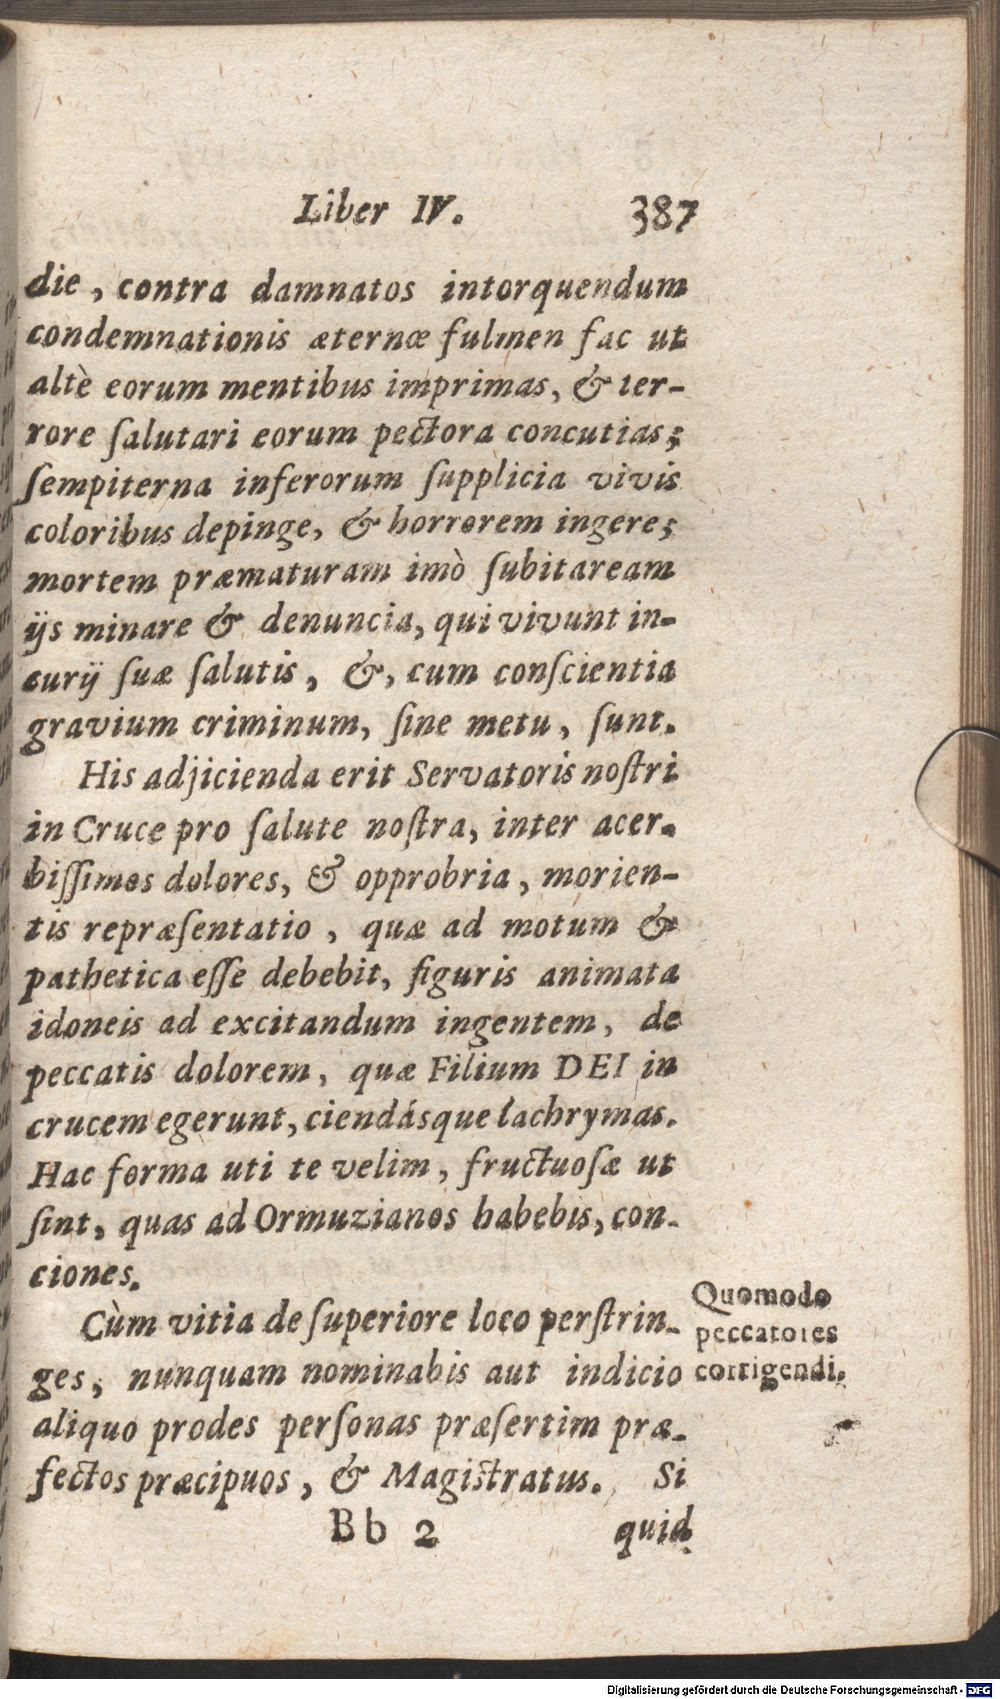 Liber IV. 387
die, contra damnatos intorquendum
condemnationis æternæ fulmen fac ut
altè eorum mentibus imprimas, & ter-
rore ſalutari eorum pectora concutias;
ſempiterna inferorum ſupplicia vivis
coloribus depinge, & horrorem ingere;
mortem præmaturam imò ſubitaream
ijs minare & denuncia, qui vivunt in-
curij ſuæ ſalutis, &, cum conſcientia
gravium criminum, ſine metu, ſunt.
His adjicienda erit Servatoris noſtri
in Cruce pro ſalute noſtra, inter acer-
biſſimos dolores, & opprobria, morien-
tis repræſentatio, quæ ad motum &
pathetica eſſe debebit, figuris animata
idoneis ad excitandum ingentem, de
peccatis dolorem, quæ Filium DEI in
crucem egerunt, ciendásque lachrymas.
Hac forma uti te velim, fructuoſæ ut
ſint, quas ad Ormuzianos habebis, con-
ciones.
Cùm vitia de ſuperiore loco perſtrin-
ges, nunquam nominabis aut indicio
aliquo prodes perſonas præſertim præ-
fectos præcipuos, & Magiſtratus. Si
Quomodo
peccatores
corrigendi.
Bb 2 quid
Digitalisierung gefördert durch die Deutsche Forschungsgemeinschaft - DFG